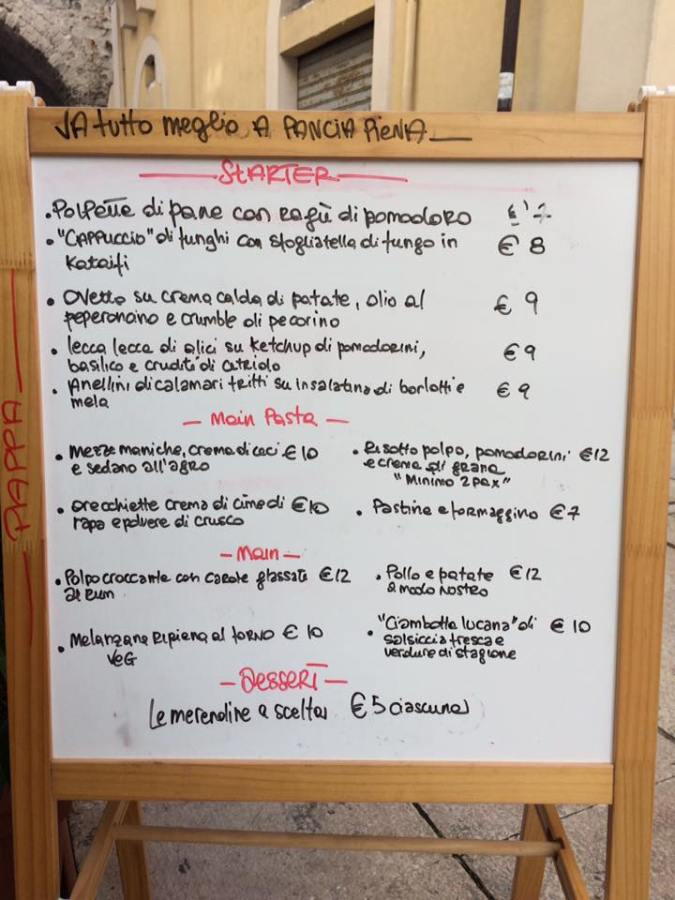 VA tutto meglio A PANCIA PIENA
STARTER
• Polpette di pane con ragù di pomodoro € 7
• "CAPPUCCIO" di funghi con sfogliatella di fungo in € 8
Kataifi
• Ovetto su crema calda di patate, olio al € 9
peperoncino e crumble di pecorino
• lecca lecca di alici su ketchup di pomodorini, € 9
basilico e crudité di cetriolo
• Anellini di calamari fritti su insalatina di borlotti e € 9
mela
- Main Pasta -
• Mezze maniche, crema di ceci € 10
e sedano all'agro
• Risotto polpo, pomodorini €12
e crema di grana
"Minimo 2 pax"
• Orecchiette crema di cime di €10
rapa e polvere di crusco
• Pastina e formaggino €7
- Main -
• Polpo croccante con carote glassate €12
al rum
• Pollo e patate €12
a modo nostro
• Melanzana Ripiena al forno € 10
VEG
• "Ciambotta lucana" di € 10
salsiccia fresca e
verdure di stagione
- Dessert -
Le merendine a scelta € 5 ciascuna
PAPPA